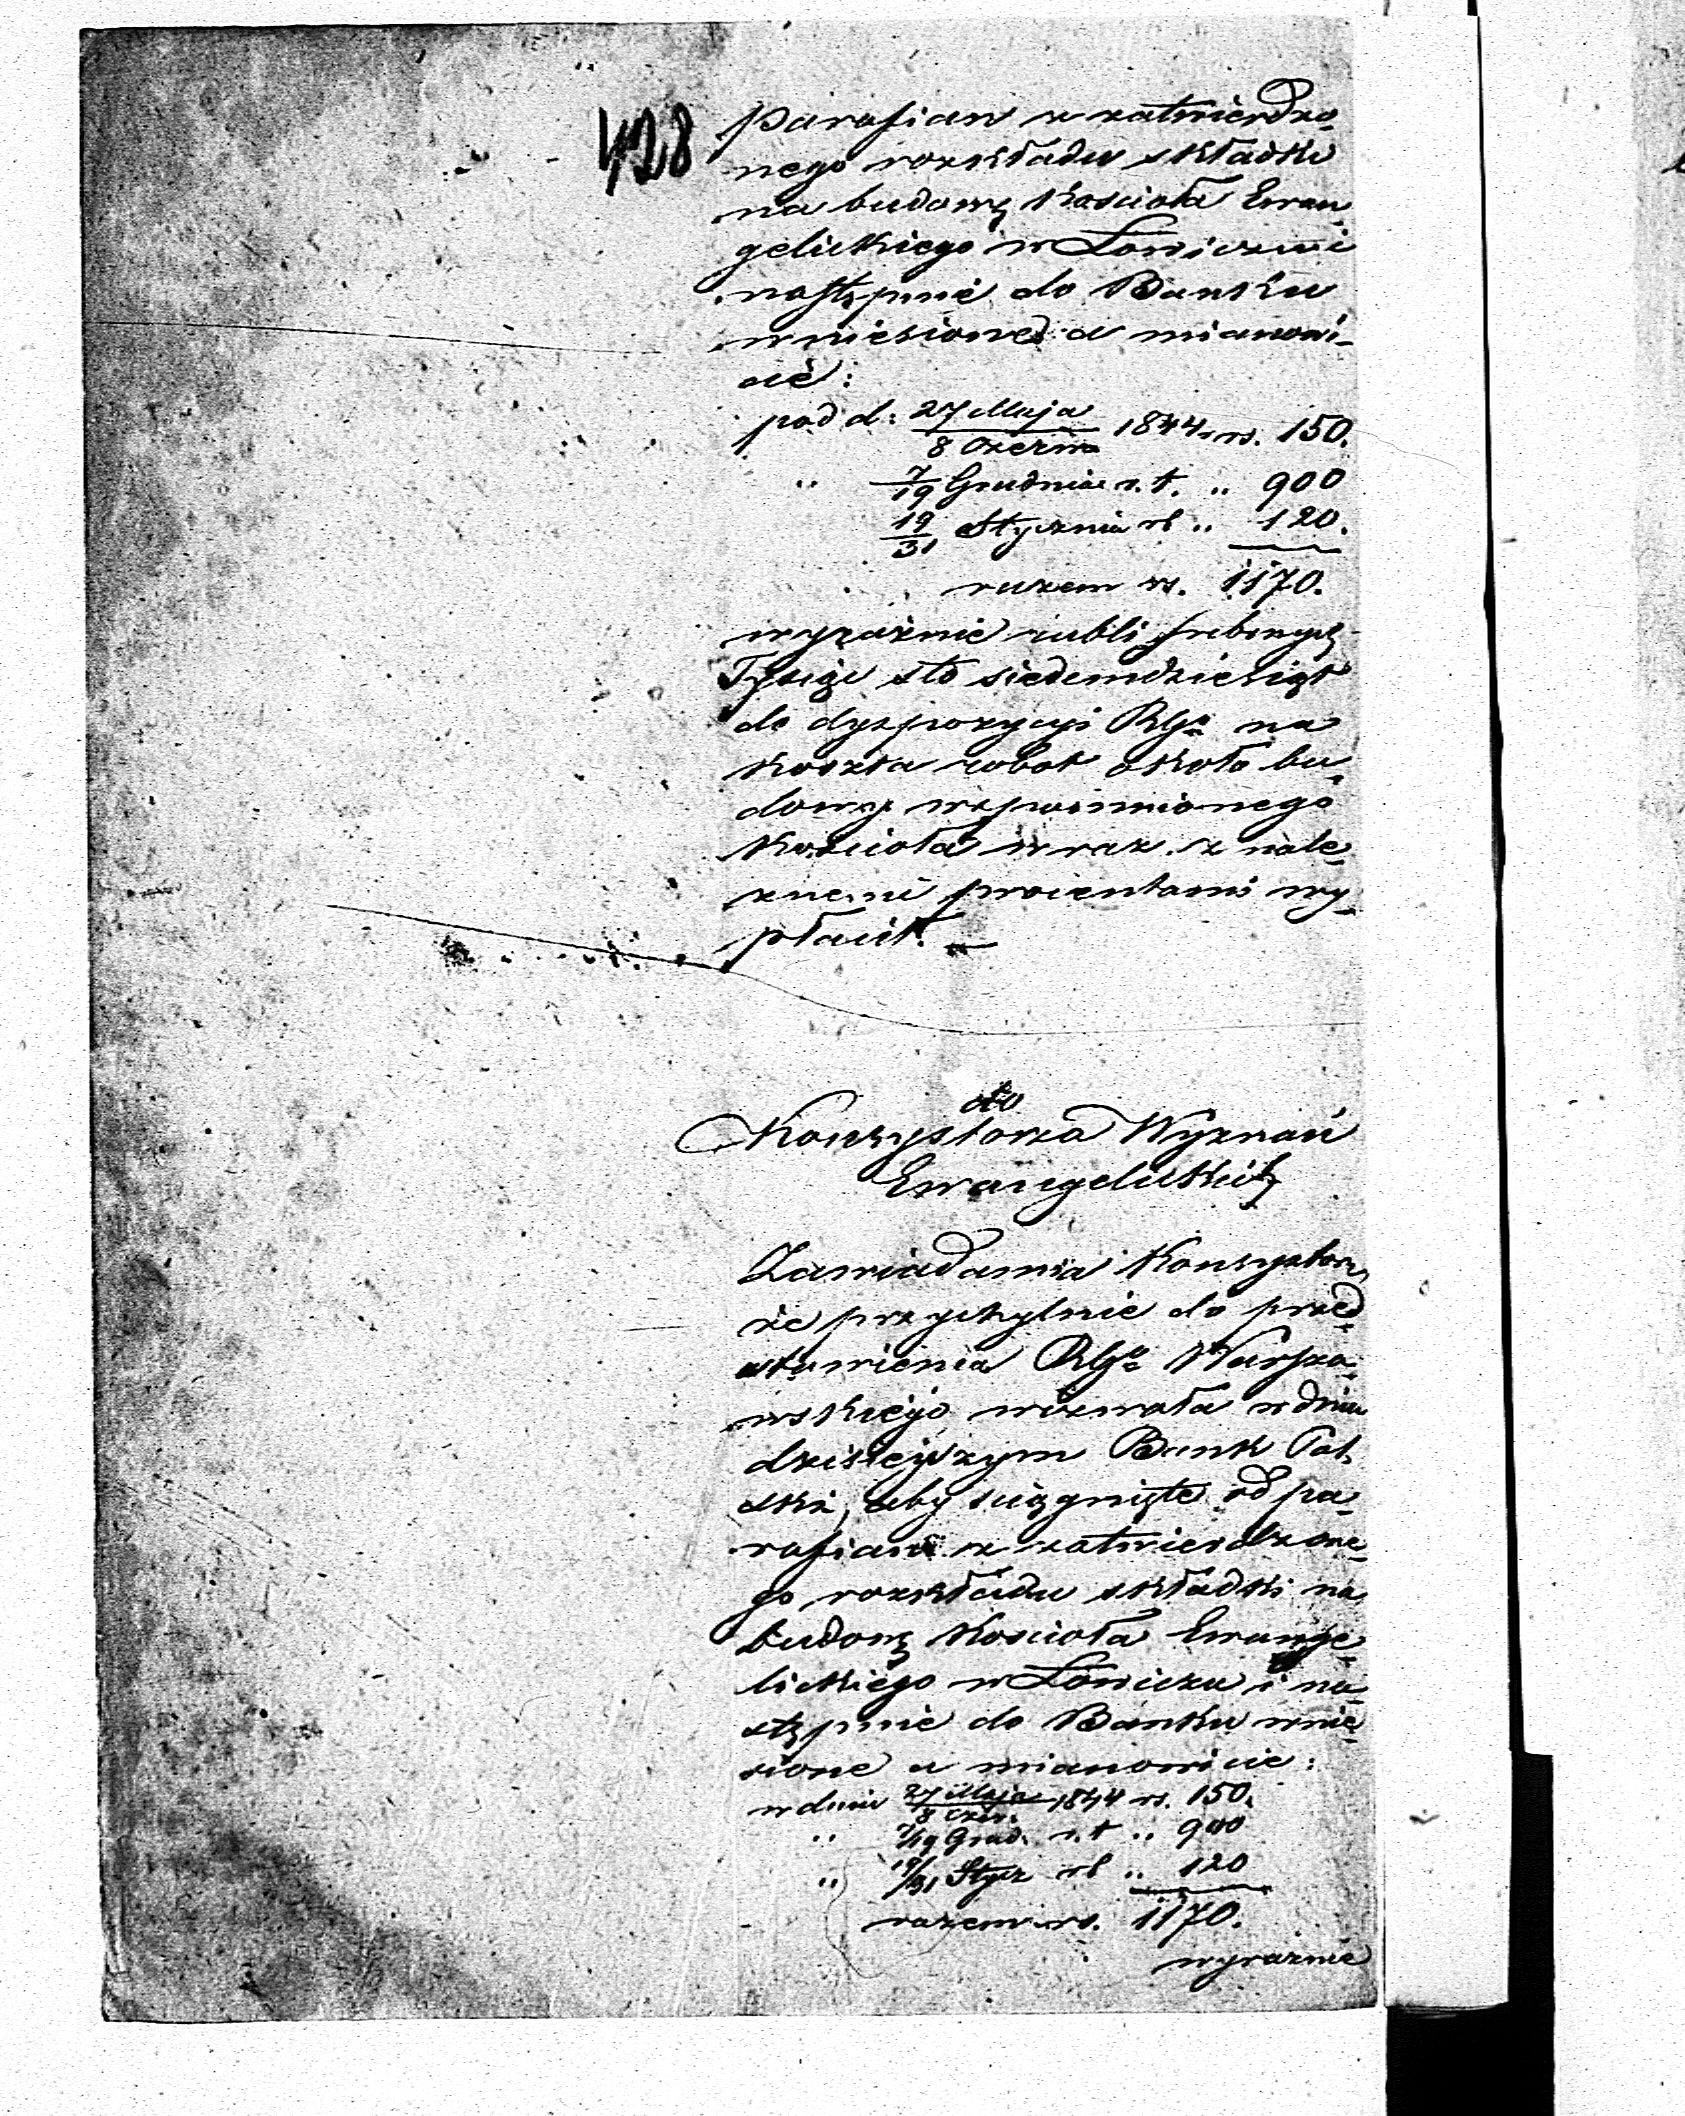 428
parafian z zatwierdzo-
nego rozkładu składki
na budowę Kościoła Ewan-
gelickiego w Łowiczu i
następnie do Banku
wniesione a mianowi-
cie:
pod d: 27 Maja / 8 Czerw 1844 rs. 150.
" 7/19 Grudnia r. t. " 900
19/31 Stycznia rb " 120.
razem rs. 1170.
wyraźnie rubli srebrnych
Tysiąc sto siedemdziesiąt
do dyspozycyi RGo na
koszta robot około bu-
dowy wspomnionego
Kościoła wraz z nale-
żnemi procentami wy-
płacił.
do
Konsystorza Wyznań
Ewangelickich
Zawiadamia Konsystorz
że przychylnie do przed-
stawienia RGo Warsza-
wskiego wezwała w dniu
dzisiejszym Bank Pol-
ski, aby ściągnięte od pa-
rafian z zatwierdzone-
go rozkładu składki na
budowę Kościoła Ewange-
lickiego w Łowiczu i na-
stępnie do Banku wnie-
sione a mianowicie:
w dniu 27 Maja / 8 Czer. 1844 rs. 150.
" 7/19 Grud. r. t " 900
" 19/31 Stycz rb " 120
razem rs. 1170.
wyraźnie